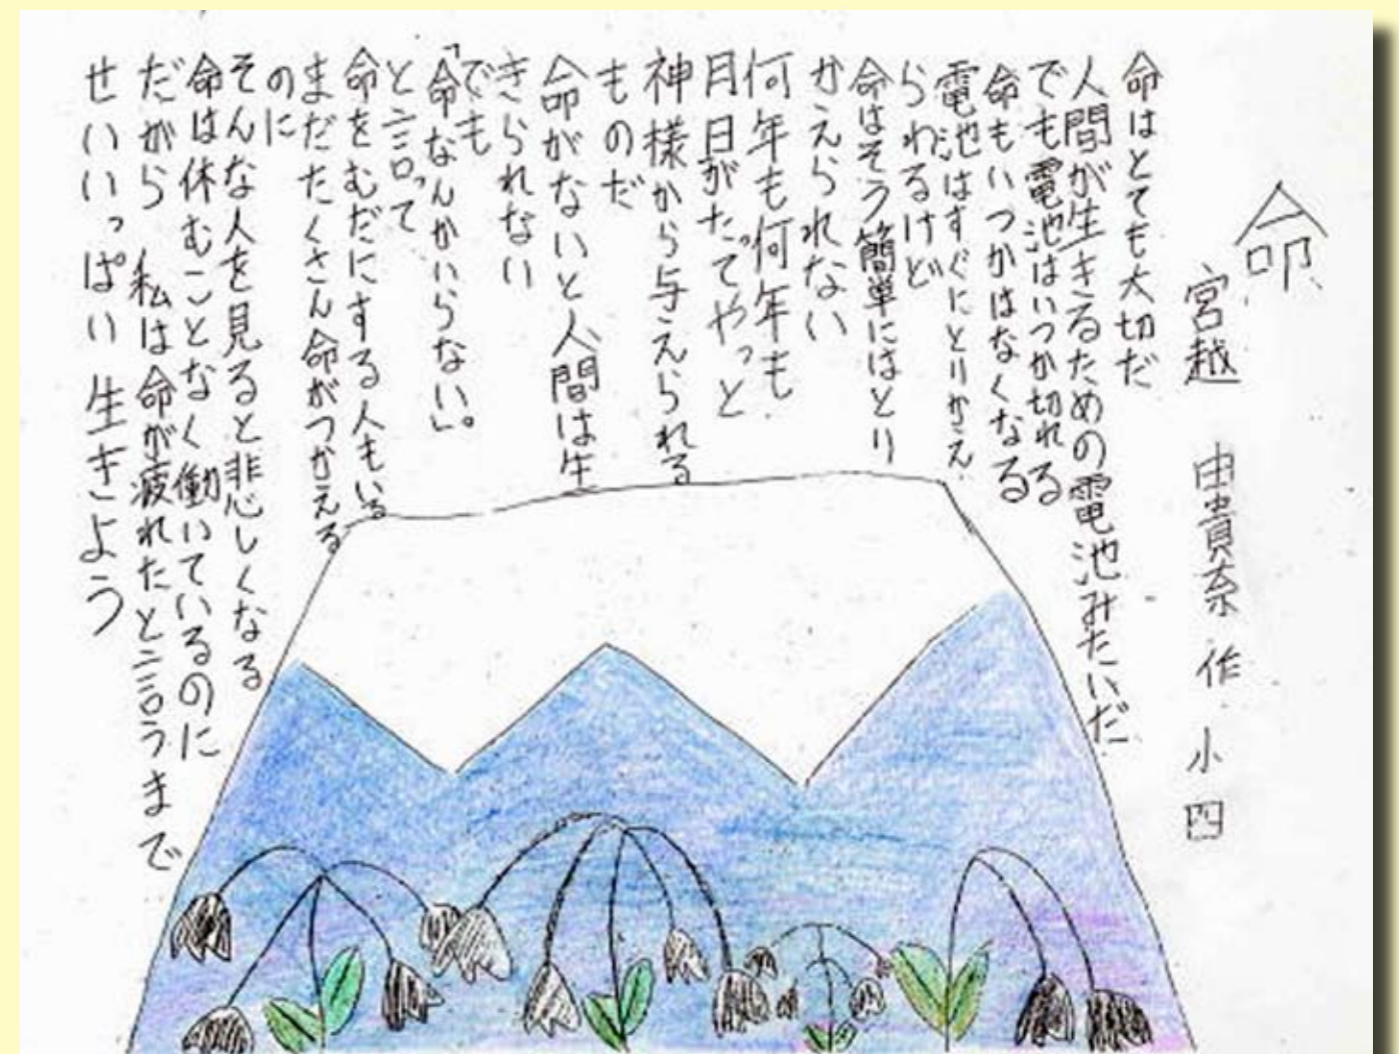 命
宮越 由貴奈 作 小四
命はとても大切だ
人間が生きるための電池みたいだ
でも電池はいつか切れる
命もいつかはなくなる
電池はすぐにとりかえ
られるけど
命はそう簡単にはとり
かえられない
何年も何年も
月日がたってやっと
神様から与えられる
ものだ
命がないと人間は生
きられない
でも
「命なんかいらない。」
と言って
命をむだにする人もいる
まだたくさん命がつかえる
のに
そんな人を見ると悲しくなる
命は休むことなく働いているのに
だから 私は命が疲れたと言うまで
せいいっぱい 生きよう